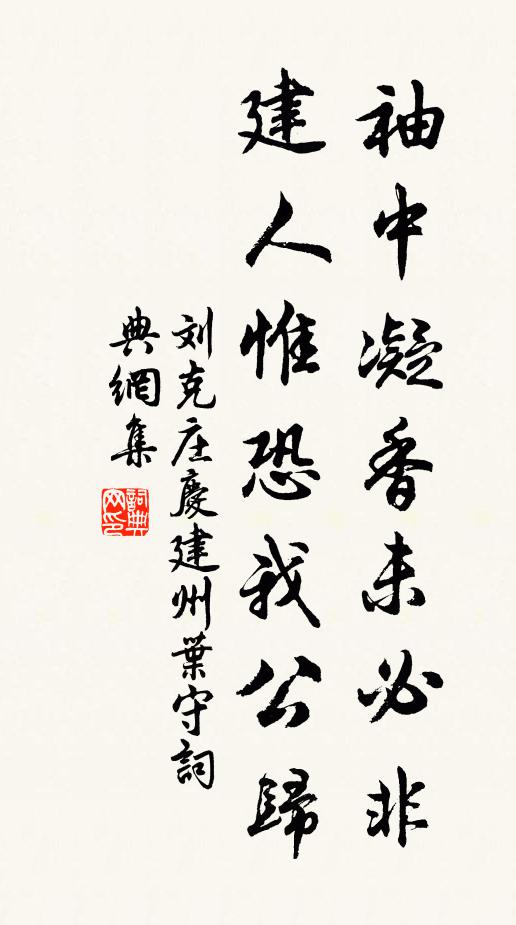 袖中凝香未必非
建人惟恐我公歸
刘克庄慶建州葉守詞
典網集
詞典网印